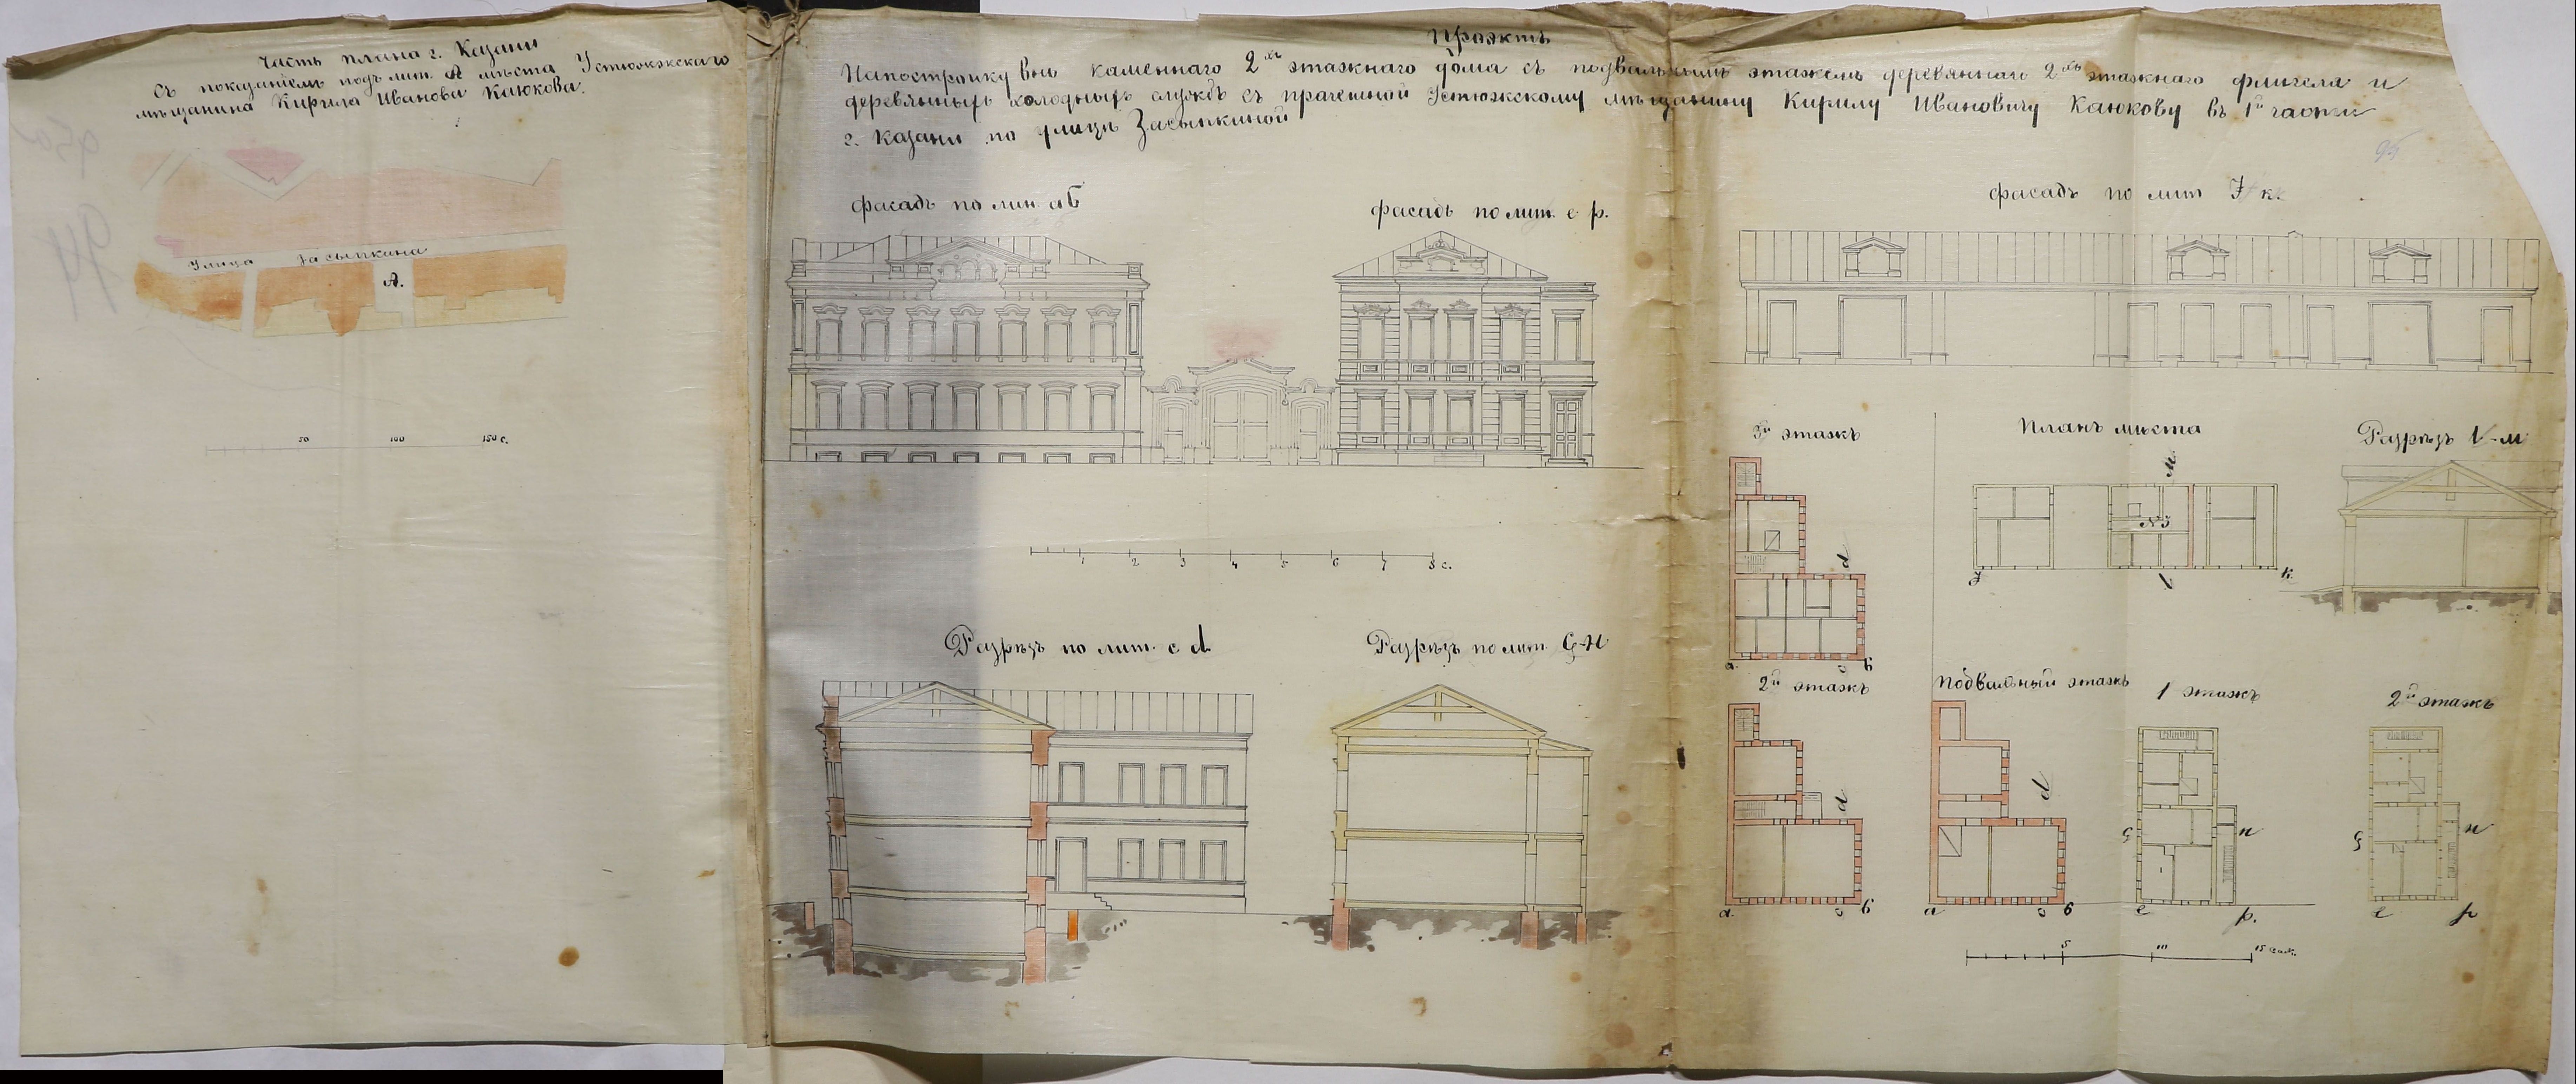 Часть плана г. Казани
съ показанiемъ подъ лит. А мѣста Устюжскаго
мѣщанина Кирила Иванова Каюкова.
Улица Засыпкина
А.
50 100 150 с.
Проэктъ
На постройку вновь каменнаго 2хъ этажнаго дома съ подвальнымъ этажемъ деревяннаго 2хъ этажнаго флигеля и
деревянныхъ холодныхъ службъ съ прачешной Устюжскому мѣщанину Кирилу Ивановичу Каюкову въ 1й части
г. Казани по улицѣ Засыпкиной
95
94
фасадъ по лин. аб
фасадъ по лит. е р.
фасадъ по лит
1 2 3 4 5 6 7 8 с.
Разрѣзъ по лит. с d
Разрѣзъ по лит.
3й этажъ
Планъ мѣста
Разрѣзъ
М.
№3
к
d
а. с б
2й этажъ
Подвальный этажъ
1 этажъ
2й этажъ
d
d
н
н
а. с б
а с б
е р.
е р
5 10 15 саж.